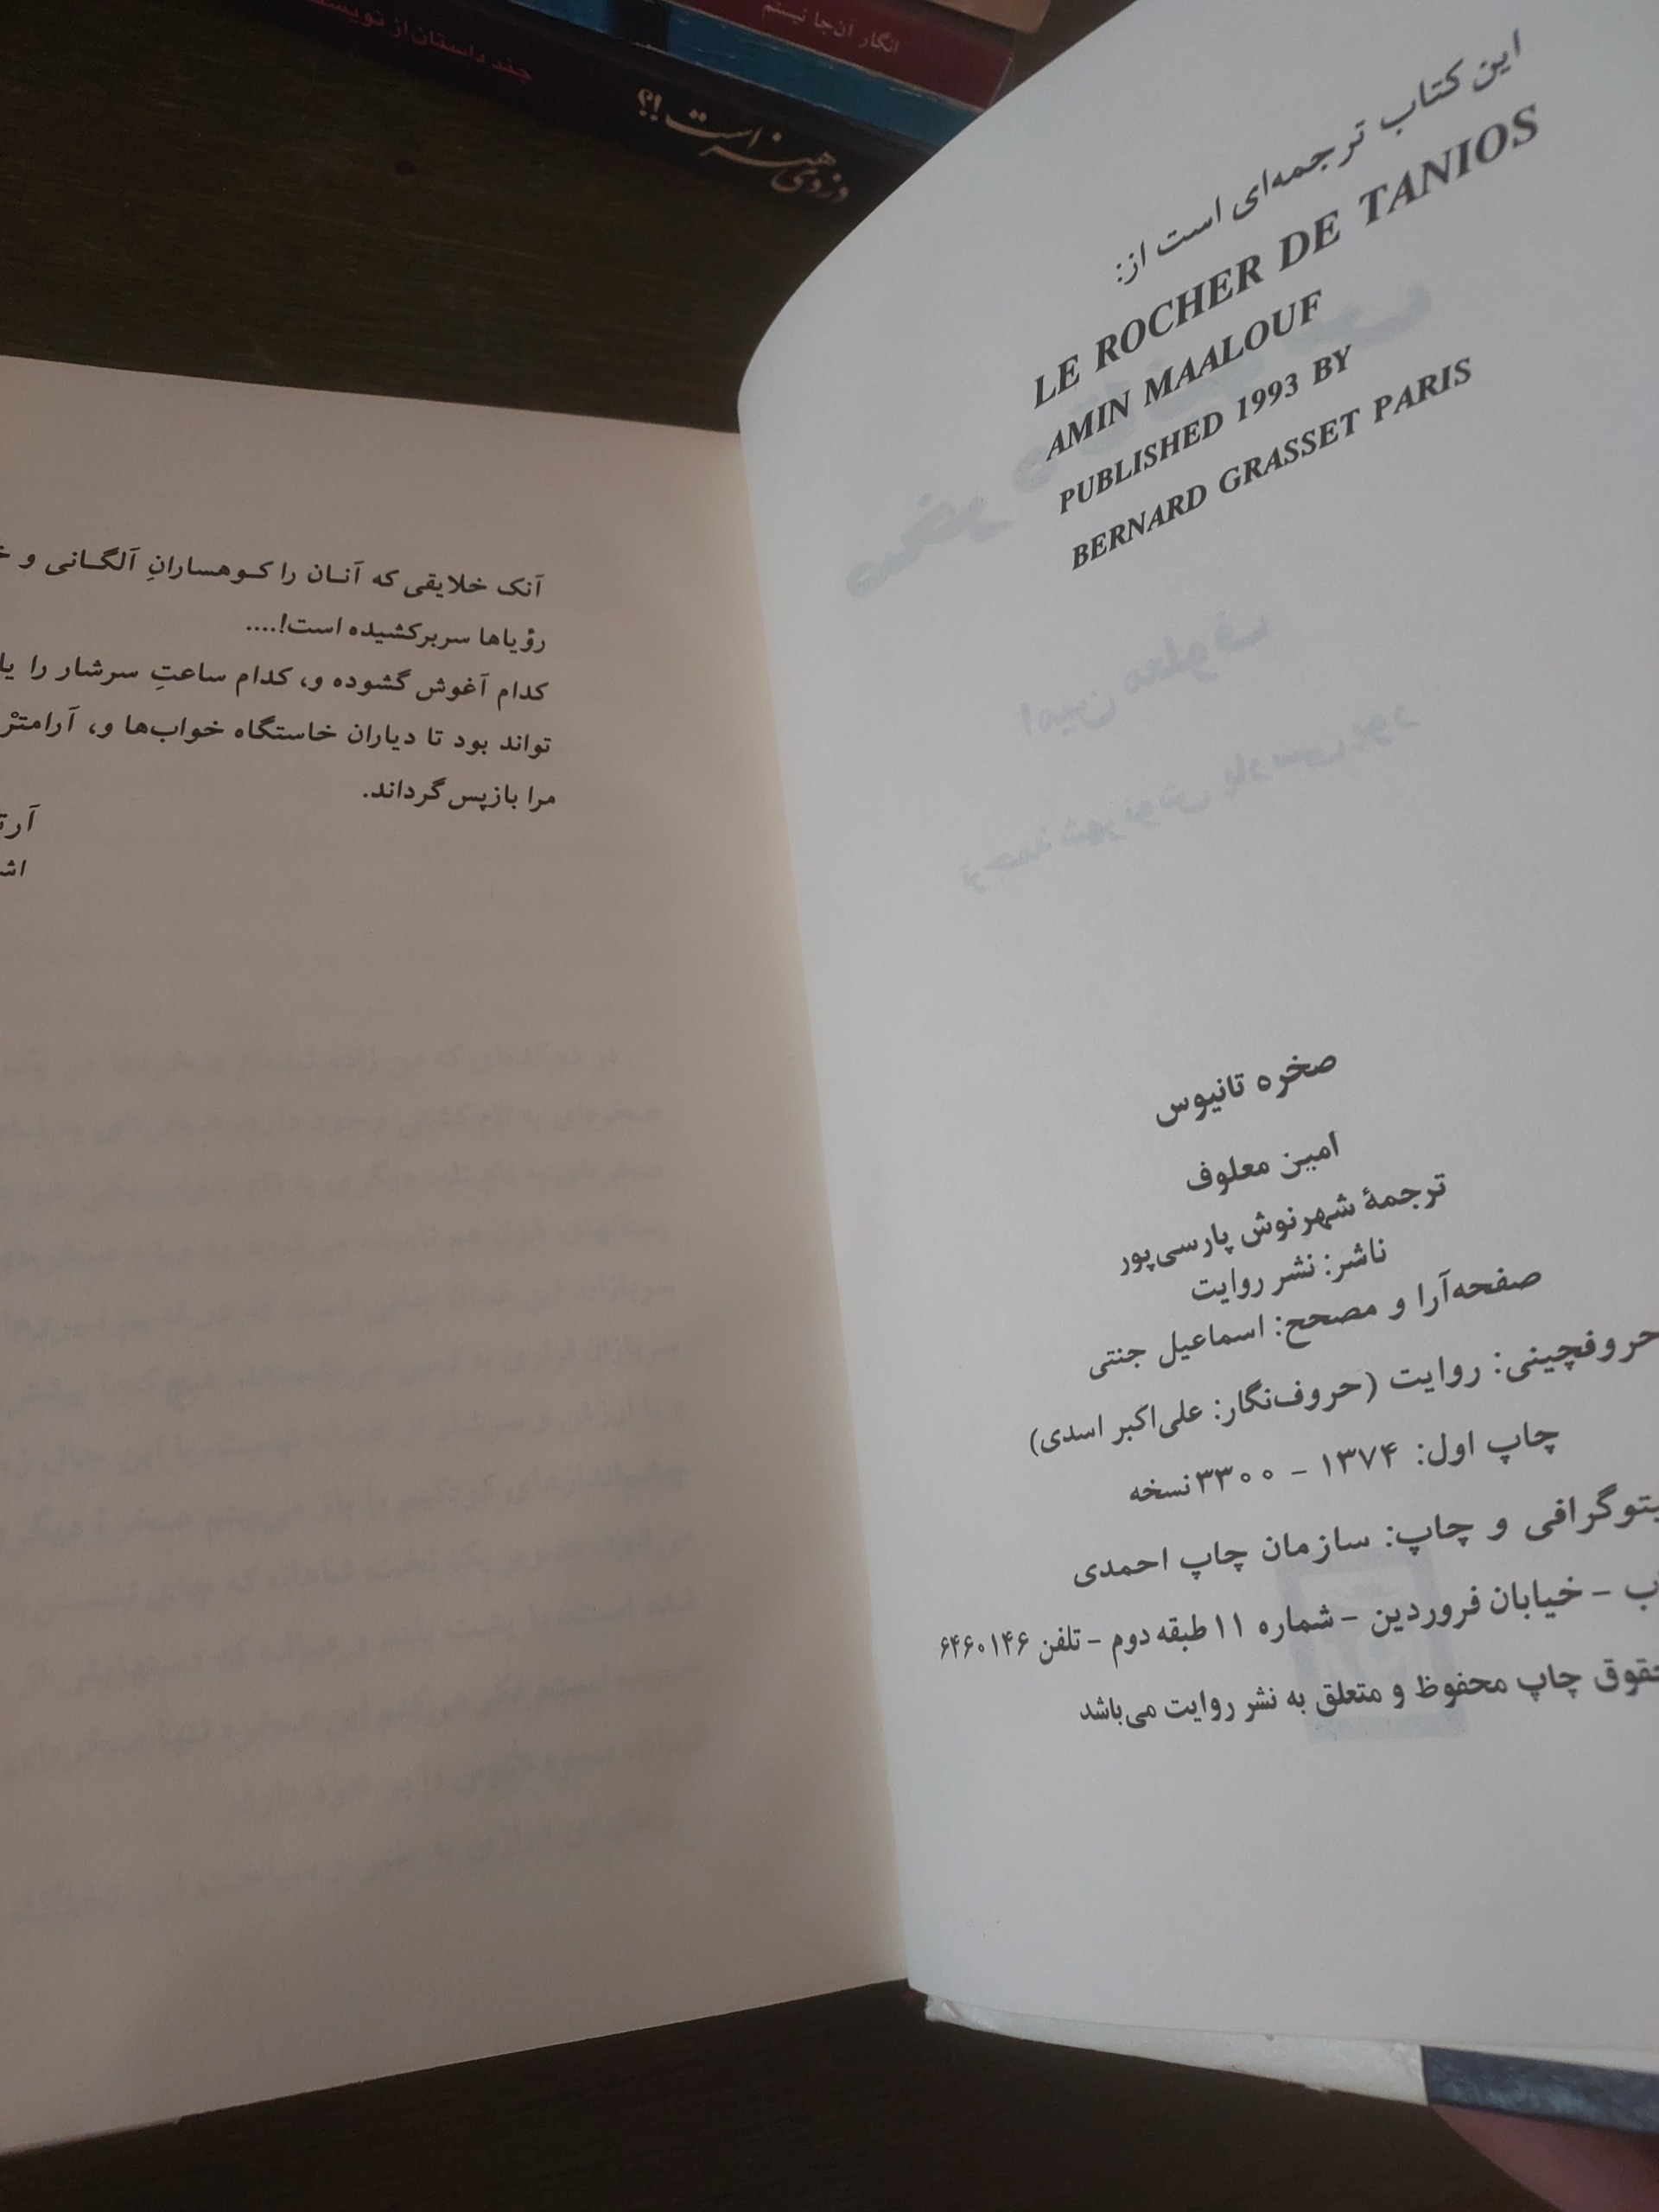 انگار آن‌جا نیستم
چند داستان از
دزدی هنر است!؟
این کتاب ترجمه‌ای است از:
LE ROCHER DE TANIOS
AMIN MAALOUF
PUBLISHED 1993 BY
BERNARD GRASSET PARIS
صخره تانیوس
امین معلوف
ترجمهٔ شهرنوش پارسی‌پور
ناشر: نشر روایت
صفحه‌آرا و مصحح: اسماعیل جنتی
حروفچینی: روایت (حروف‌نگار: علی‌اکبر اسدی)
چاپ اول: ۱۳۷۴ - ۳۳۰۰ نسخه
و چاپ: سازمان چاپ احمدی
– خیابان فروردین – شماره ۱۱ طبقه دوم – تلفن ۶۴۶۰۱۴۶
چاپ محفوظ و متعلق به نشر روایت می‌باشد
آنک خلایقی که آنان را کوهسارانِ آلگانی و
رؤیاها سربرکشیده است!....
کدام آغوش گشوده و، کدام ساعتِ سرشار را
تواند بود تا دیاران خاستگاه خواب‌ها و، آرامترْ
مرا بازپس گرداند.